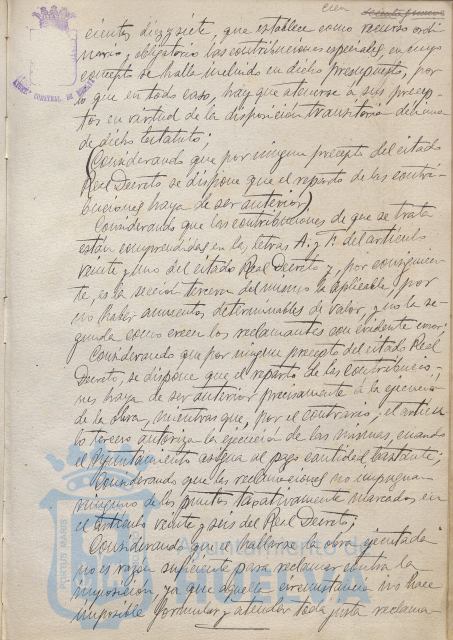 cien
cientos diez y siete, que establece como recurso ordi-
nario, obligatorio las contribuciones especiales, en cuyo
concepto se halla incluido en dicho presupuesto, por
lo que en todo caso, hay que atenerse a sus precep-
tos en virtud de la disposición transitoria décima
de dicho Estatuto;
(Considerando que por ningun precepto del citado
Real Decreto, se dispone que el reparto de las contri-
buciones haya de ser anterior)
Considerando que las contribuciones de que se trata
están comprendidas en las letras A. y F. del artículo
veinte y uno del citado Real Decreto y, por consiguien-
te, es la sección tercera del mismo la aplicable, por
no haber aumentos determinables de valor, y no la se-
gunda como creen los reclamantes con evidente error;
Considerando que por ningun precepto del citado Real
Decreto, se dispone que el reparto de las contribucio-
nes haya de ser anterior precisamente á la ejecución
de la obra, mientras que, por el contrario, el artícu-
lo tercero autoriza la ejecución de las mismas, cuando
el Ayuntamiento cantidad bastante;
Considerando que las reclamaciones no impugnan
ninguno de los puntos taxativamente marcados en
el artículo veinte y seis del Real Decreto;
Considerando que el hallarse la obra ejecutada
no es razón suficiente para reclamar contra la
imposición, ya que aquella circunstancia no hace
imposible formular y atender toda justa reclama-
PORTUS MARIS
Ayuntamiento de
HUELVA